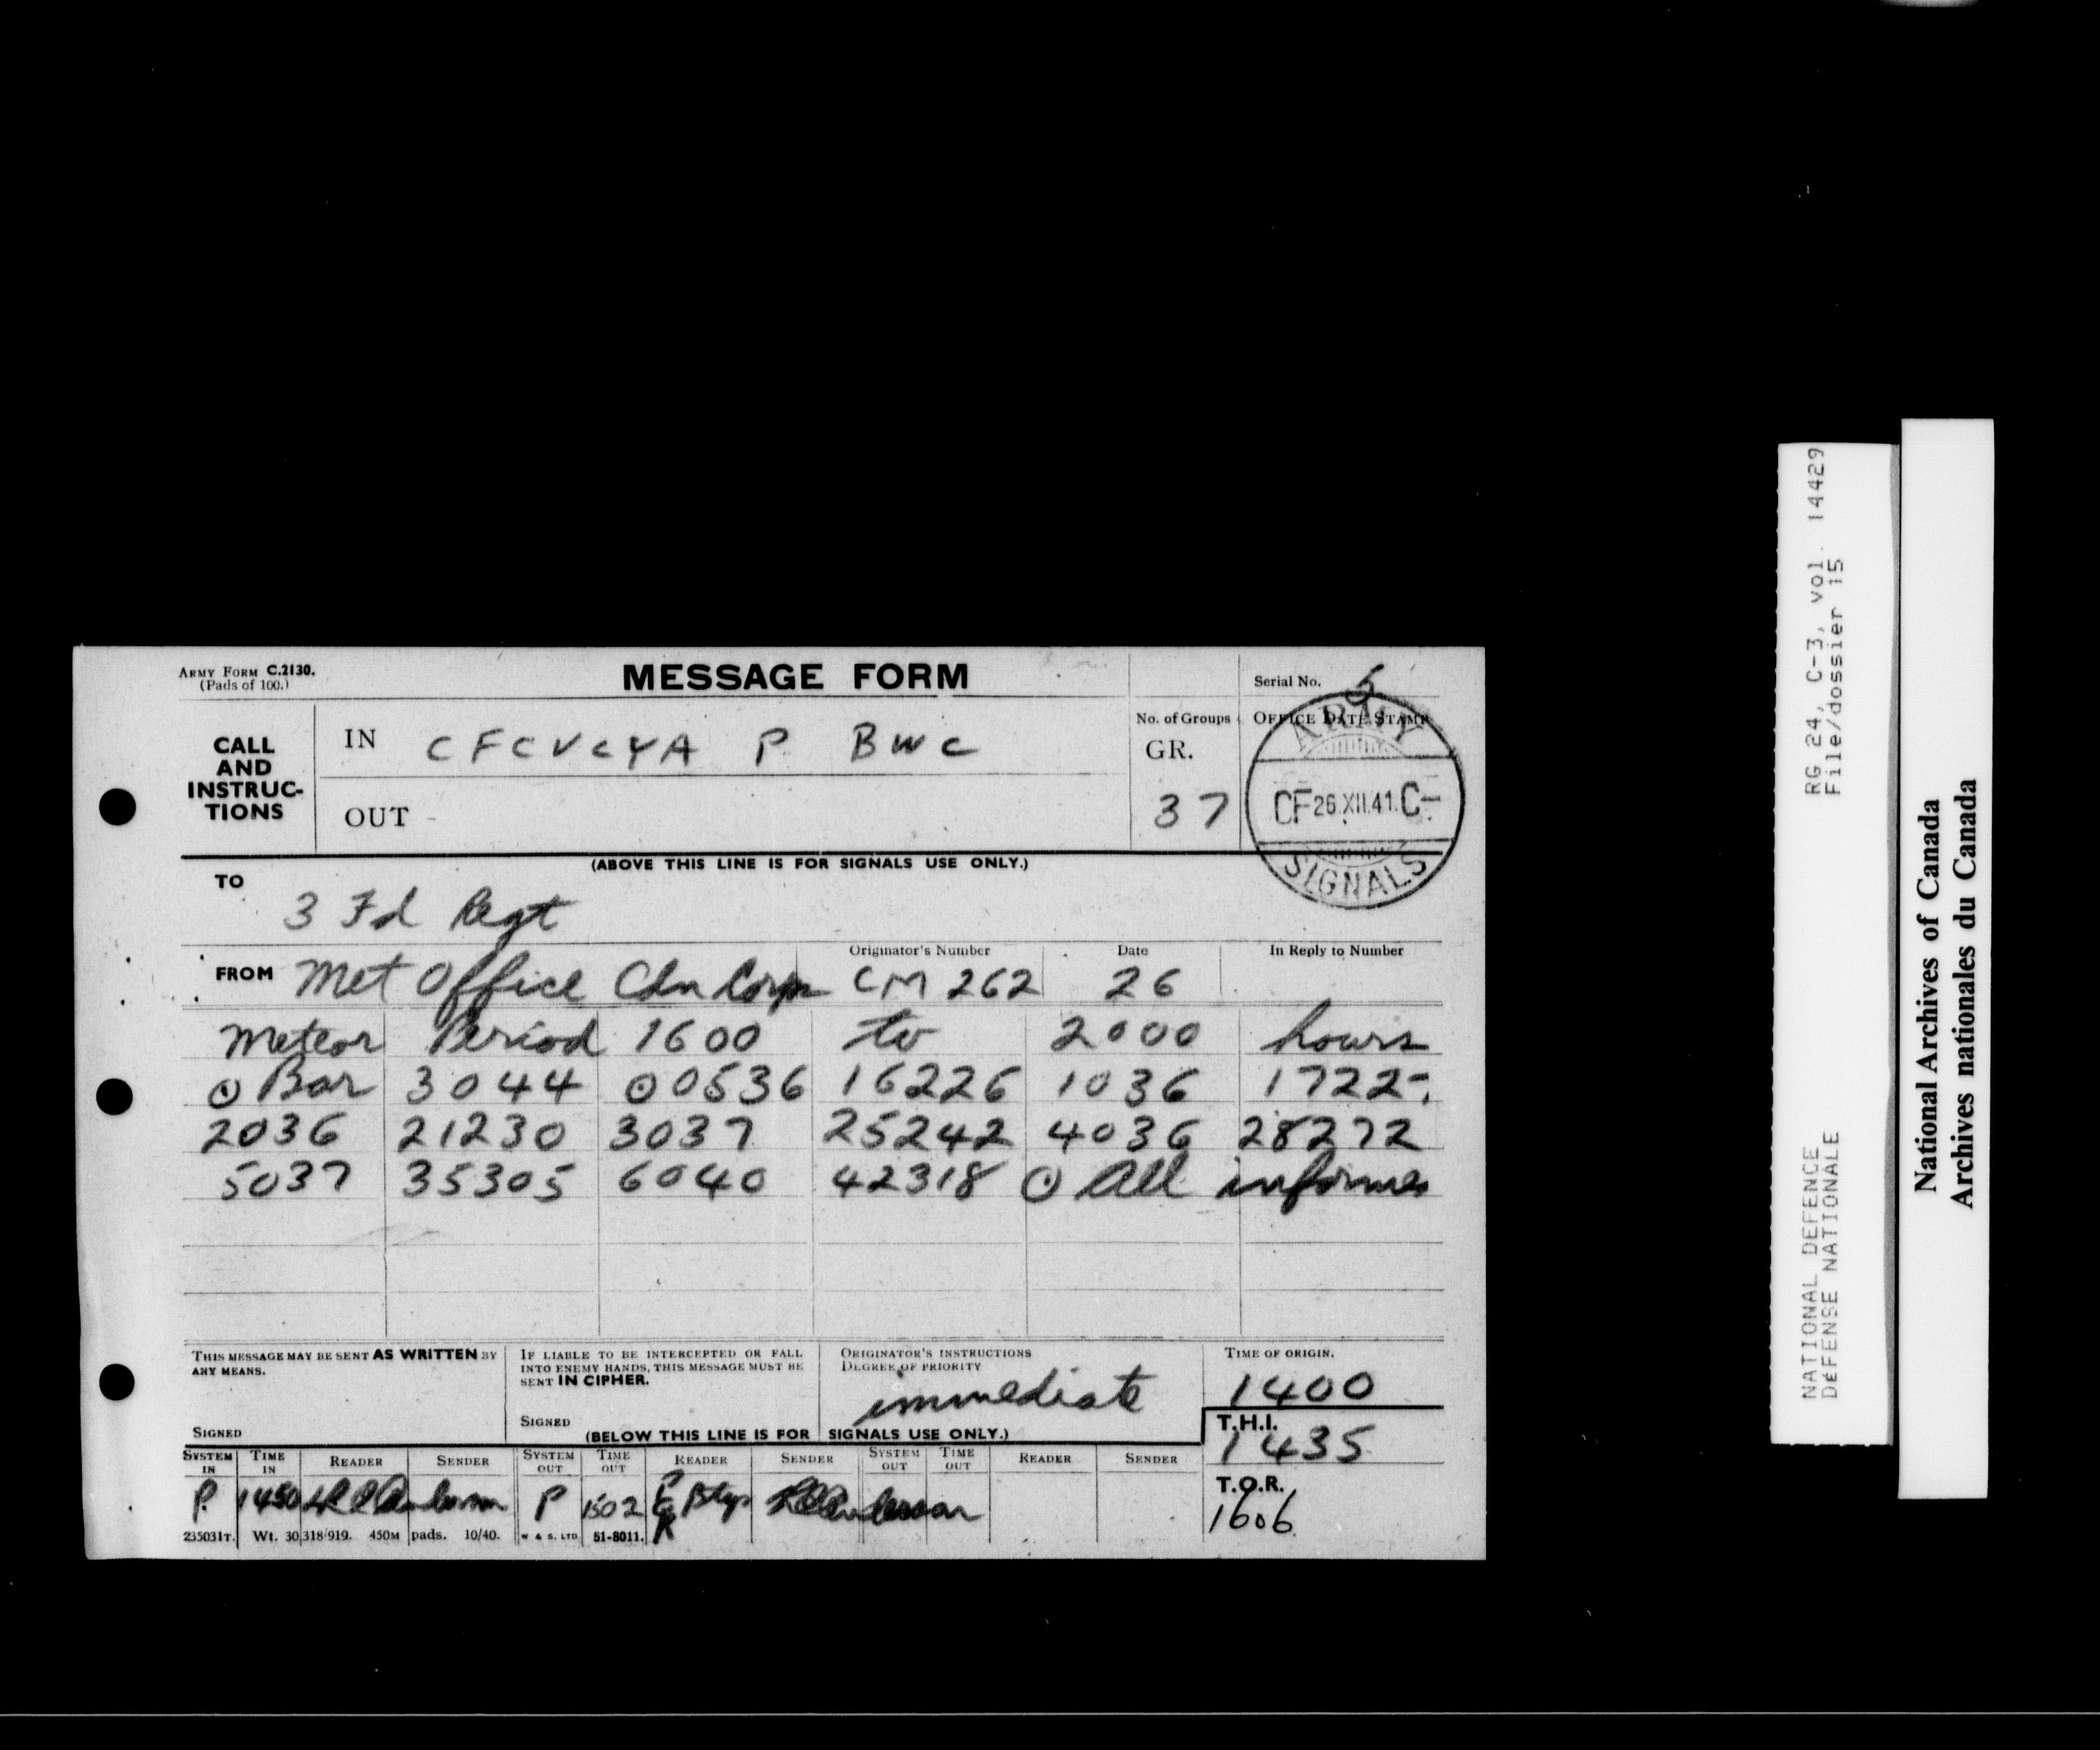 ARMY FORM C.2130.
(Pads of 100.)
MESSAGE FORM
Serial No. 5
CALL AND INSTRUC-TIONS
IN CFCVCYA P BWC
No. of Groups
GR.
37
OFFICE DATE STAMP
ARMY
CF 26.XII.41. C-
SIGNALS
OUT -
(ABOVE THIS LINE IS FOR SIGNALS USE ONLY.)
TO
3 Fd Regt
FROM Met Office Cdn Corps
Originator's Number
CM 262
Date
26
In Reply to Number
Meteor Period 1600 to 2000 hours
⊙ Bar 3044 ⊙ 00536 16226 1036 1722-.
2036 21230 3037 25242 4036 28272
5037 35305 6040 42318 ⊙ All informed
THIS MESSAGE MAY BE SENT AS WRITTEN BY
ANY MEANS.
SIGNED
IF LIABLE TO BE INTERCEPTED OR FALL
INTO ENEMY HANDS, THIS MESSAGE MUST BE
SENT IN CIPHER.
SIGNED
ORIGINATOR'S INSTRUCTIONS
DEGREE OF PRIORITY
immediate
TIME OF ORIGIN.
1400
(BELOW THIS LINE IS FOR SIGNALS USE ONLY.)
T.H.I.
1435
SYSTEM IN TIME IN READER SENDER SYSTEM OUT TIME OUT READER SENDER SYSTEM OUT TIME OUT READER SENDER
P 1450 P 1502 Btys
T.O.R.
1606
235031T. Wt. 30,318/919. 450M pads. 10/40. W & S. LTD 51-8011.
RG 24, C-3, vol. 14429
File/dossier 15
NATIONAL DEFENCE
DÉFENSE NATIONALE
National Archives of Canada
Archives nationales du Canada